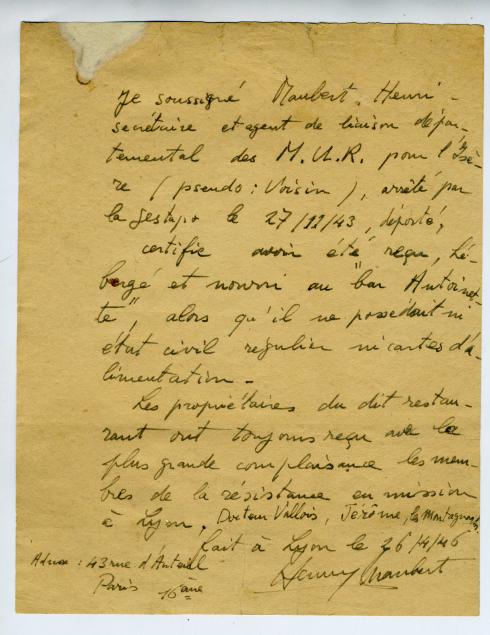 Je soussigné Maubert, Henri -
secrétaire et agent de liaison dépar-
temental des M.U.R. pour l'Isè-
re (pseudo : Voisin), arrêté par
la gestapo le 27/11/43, déporté,
certifie avoir été reçu, hé-
bergé et nourri au "bar Antoinet-
te", alors qu'il ne possédait ni
état civil régulier ni cartes d'a-
limentation -
Les propriétaires du dit restau-
rant ont toujours reçu avec la
plus grande complaisance les mem-
bres de la résistance en mission
à Lyon. Docteur Vallois, Jérôme, les Montagnards
fait à Lyon le 26/4/46
Adresse : 43 rue d'Auteuil
Paris 16ème
Henry Maubert